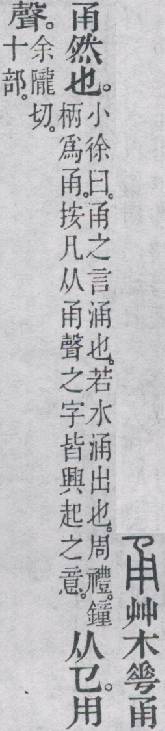 甬艸木𠌶甬
甬然也。小徐曰。甬之言涌也。若水涌出也。周禮。鐘
柄爲甬。按凡从甬聲之字皆興起之意。从𢎘。用
聲。余隴切。
十部。